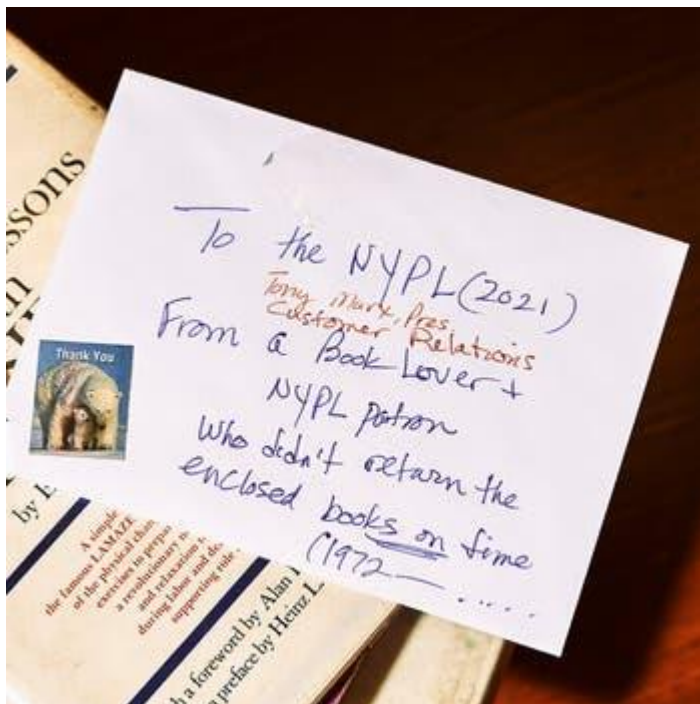 To the NYPL (2021)
Tony Marx, Pres
Customer Relations
From a Book Lover +
NYPL patron
Who didn't return the
enclosed books on time
(1972 — .....
Thank You
ssons
by
A simple
the famous LAMAZE
of the physical chan
exercises to prepa
a revolutionary
and relaxation
during labor and de
supporting role
h a foreword by Alan
a preface by Heinz L.